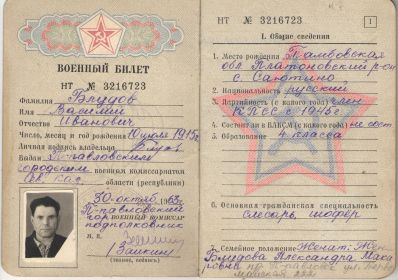 ВОЕННЫЙ БИЛЕТ
НТ № 3216723
Фамилия Блудов
Имя Василий
Отчество Иванович
Число, месяц и год рождения 10 июля 1915г.
Личная подпись владельца
Выдан П-павловским
городским военным комиссариатом
Св. каз. области (республики)
30 октября 1963г.
П-павловский
гор военный комиссар
подполковник
м. п.
Заикин
(звание, подпись)
НТ № 3216723
1
I. Общие сведения
1. Место рождения Тамбовская
обл. Платоновский р-он
с. Саютино
2. Национальность русский
3. Партийность (с какого года) член
КПСС с 1945г
4. Состоит ли в ВЛКСМ (с какого года) не сост
5. Образование 4 класса
6. Основная гражданская специальность
слесарь, шофёр
7. Семейное положение Женат: Жен
Блудова Александра Мака
ровна